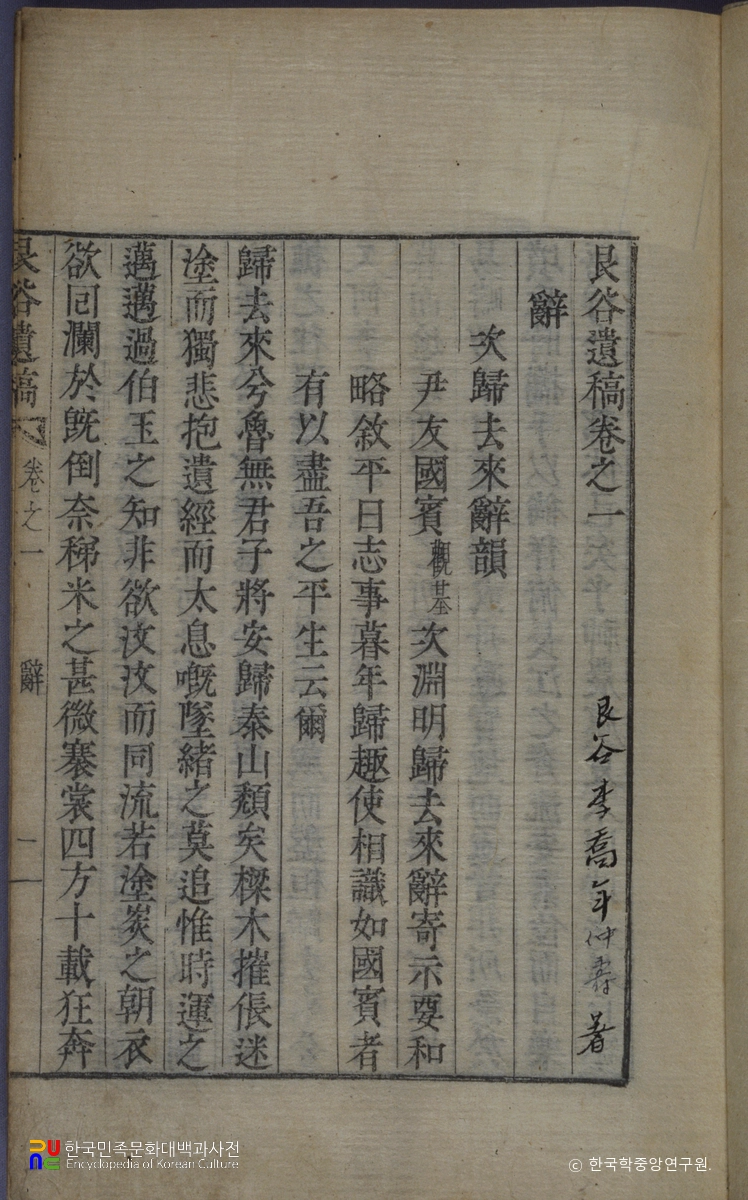 艮谷遺稿卷之一
艮谷 李喬年 仲壽 著
辭
次歸去來辭韻
尹友國賓觀基次淵明歸去來辭寄示要和
略敘平日志事暮年歸趣使相識如國賓者
有以盡吾之平生云爾
歸去來兮魯無君子將安歸泰山頹矣樑木摧倀迷
塗而獨悲抱遺經而太息嘅墜緒之莫追惟時運之
邁邁過伯玉之知非欲汶汶而同流若塗炭之朝衣
欲回瀾於旣倒奈稊米之甚微褰裳四方十載狂奔
艮谷遺稿 卷之一 辭 二
한국민족문화대백과사전
Encyclopedia of Korean Culture
ⓒ 한국학중앙연구원.